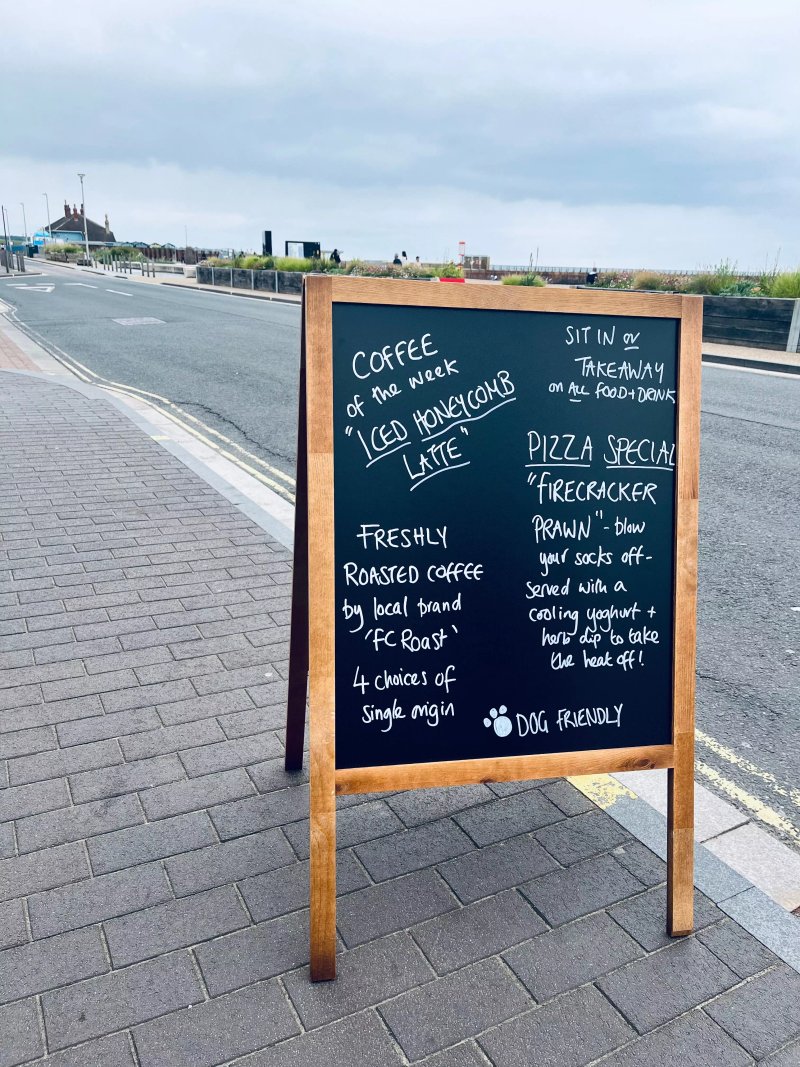 COFFEE
of the week
"ICED HONEYCOMB
LATTE"
FRESHLY
ROASTED COFFEE
by local brand
'FC Roast'
4 choices of
single origin
SIT IN or
TAKEAWAY
on ALL FOOD + DRINK
PIZZA SPECIAL
"FIRECRACKER
PRAWN" - blow
your socks off -
served with a
cooling yoghurt +
herb dip to take
the heat off!
DOG FRIENDLY